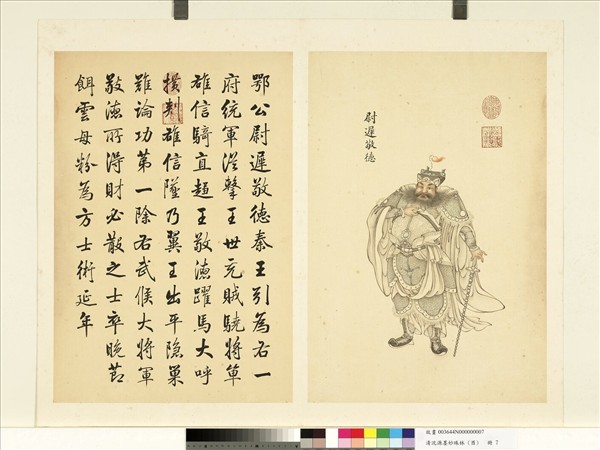 尉遲敬德
鄂公尉遲敬德秦王引為右一
府統軍從擊王世充賊驍將單
雄信騎直趨王敬德躍馬大呼
横刺雄信墜乃翼王出平隐巢
雖論功第一除右武侯大將軍
敬德所得財必散之士卒晚節
餌雲母粉為方士術延年
故畫 003644N000000007
清沈源墨妙珠林（酉） 冊 7